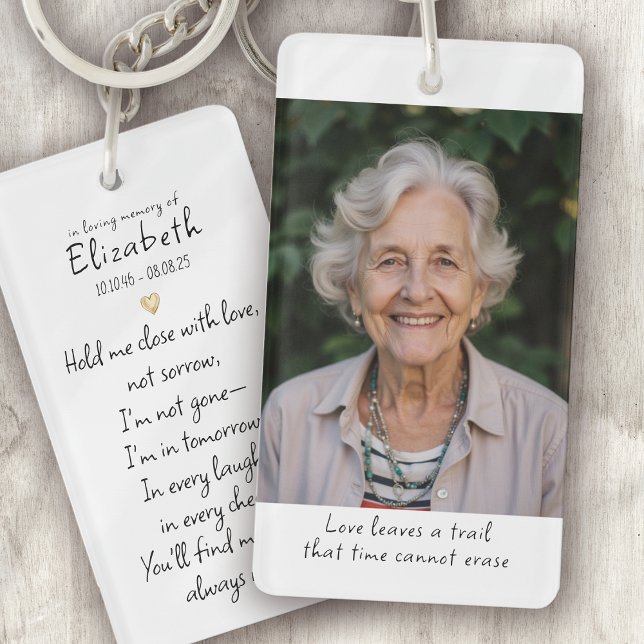 in loving memory of
Elizabeth
10.10.46 - 08.08.25
Hold me close with love,
not sorrow,
I'm not gone—
I'm in tomorrow
In every
in every
You'll find
always
Love leaves a trail
that time cannot erase